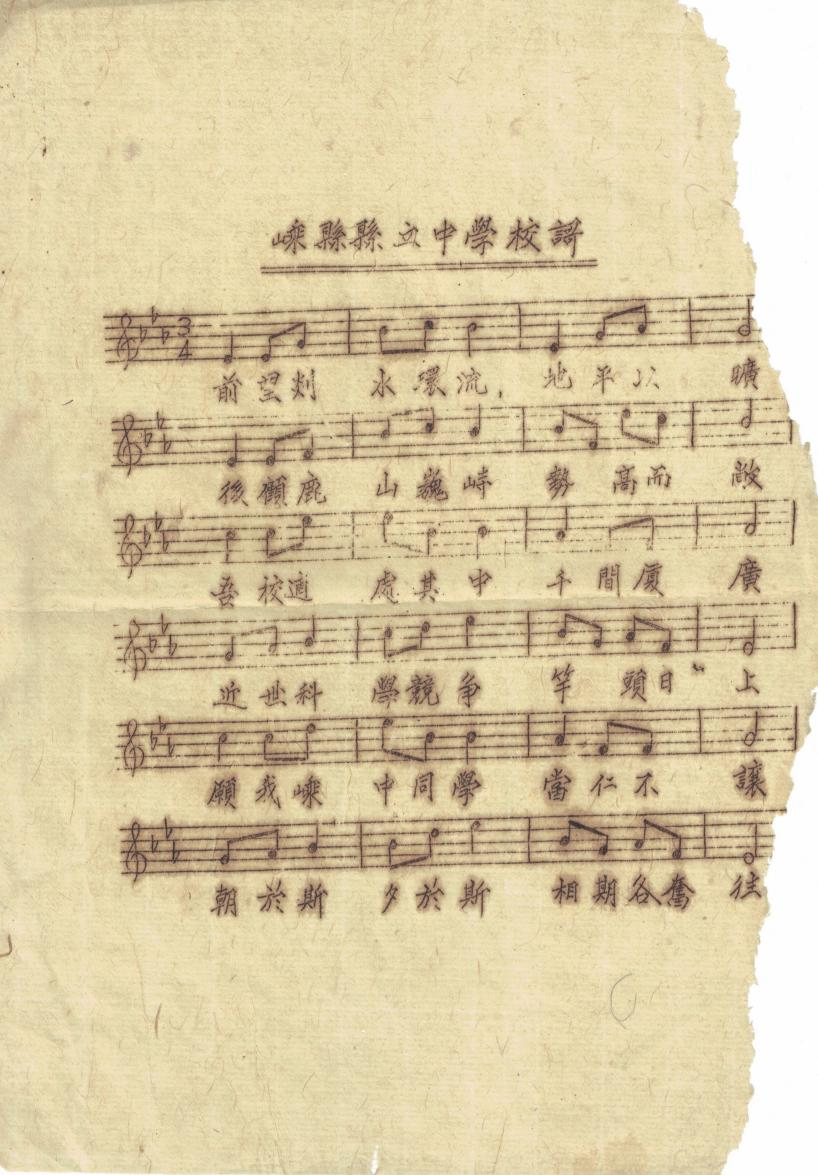 嵊縣縣立中學校謌
3
4
前望剡水環流,地平以曠
後顧鹿山巍峙勢高而敞
吾校適處其中千間厦廣
近世科學競爭竿頭日〻上
願我嵊中同學當仁不讓
朝於斯夕於斯相期各奮往